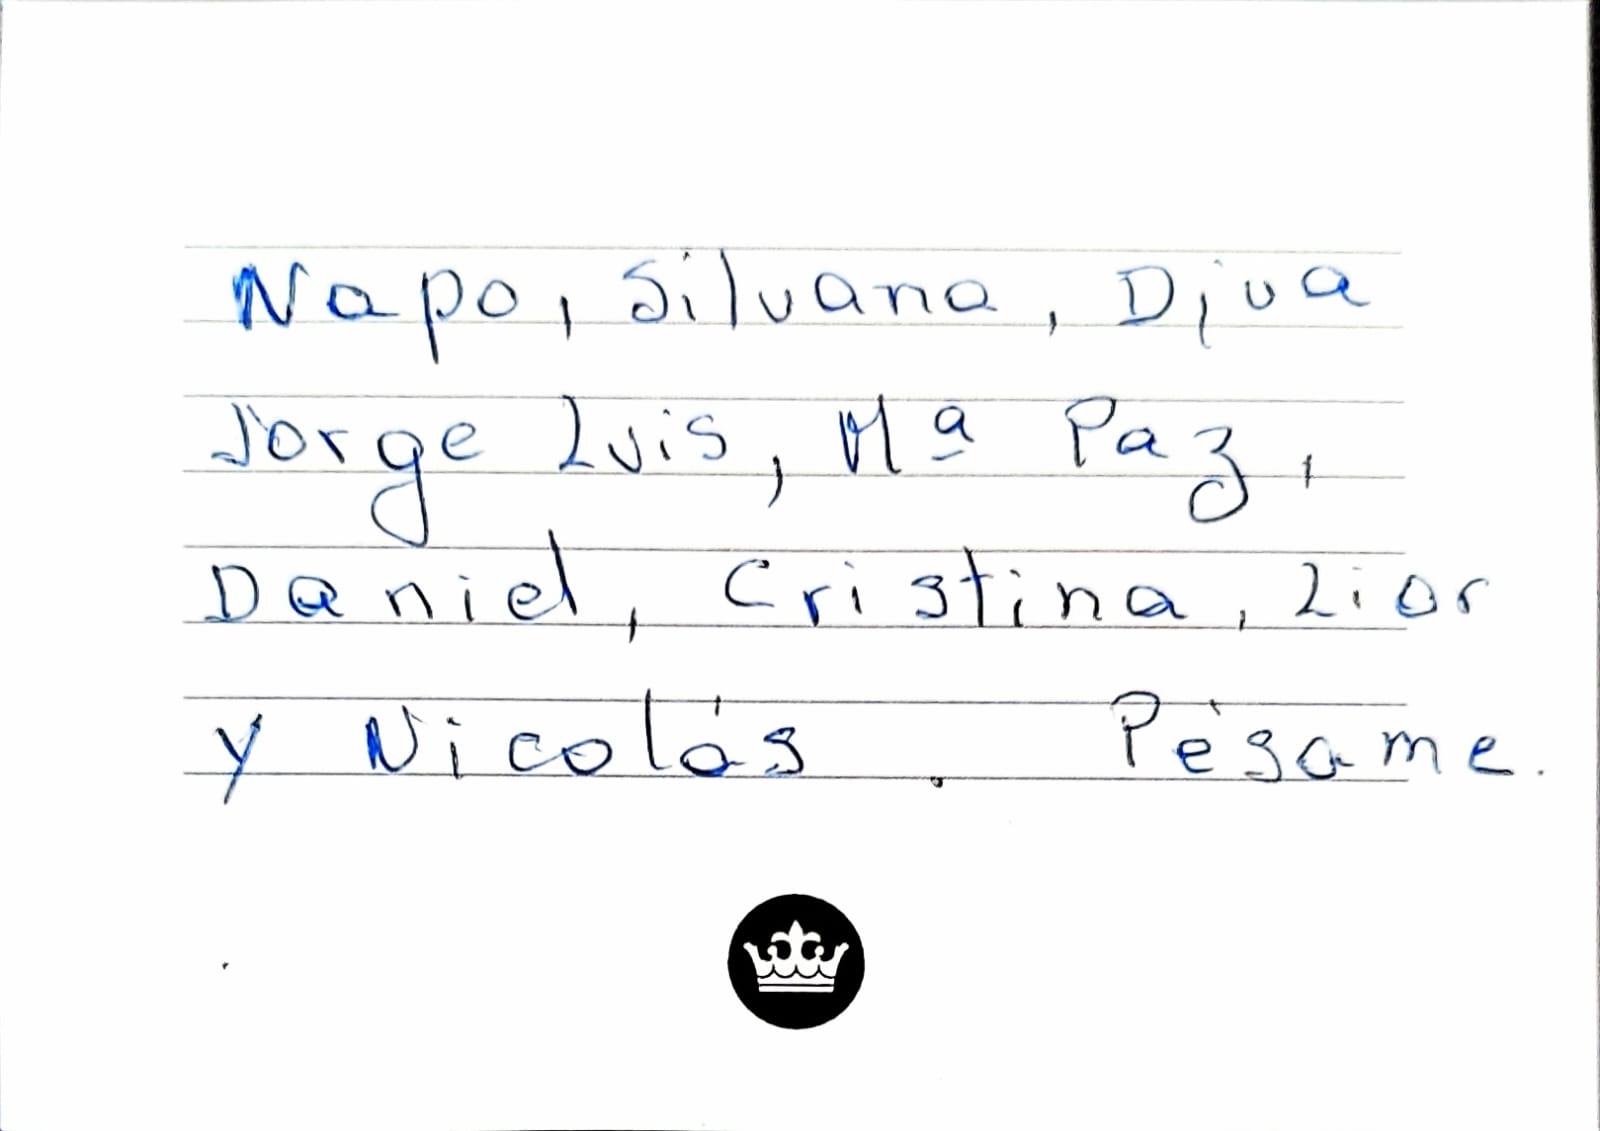 Napo, Silvana, Diva
Jorge Luis, Mª Paz,
Daniel, Cristina, Lior
y Nicolás. Pésame.